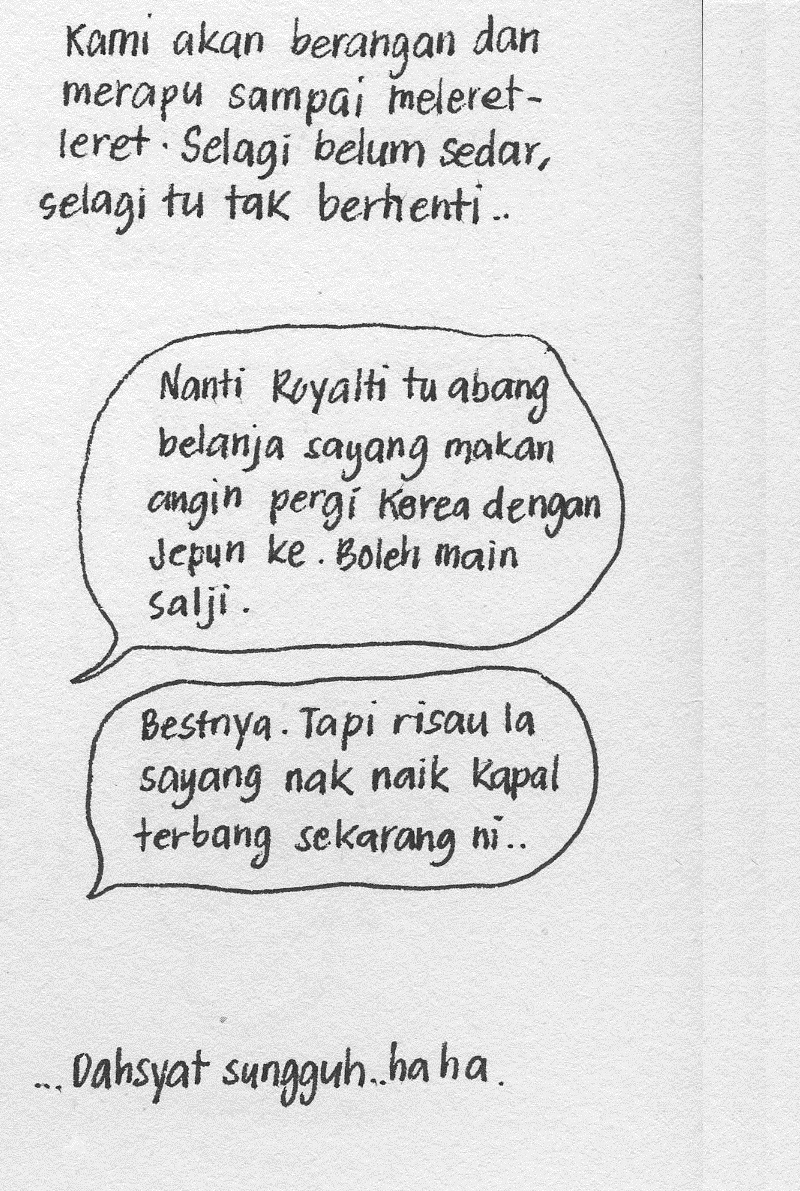 Kami akan berangan dan
merapu sampai meleret-
leret. Selagi belum sedar,
selagi tu tak berhenti..
Nanti Royalti tu abang
belanja sayang makan
angin pergi Korea dengan
Jepun ke. Boleh main
salji.
Bestnya. Tapi risau la
sayang nak naik kapal
terbang sekarang ni..
...Dahsyat sungguh..haha.